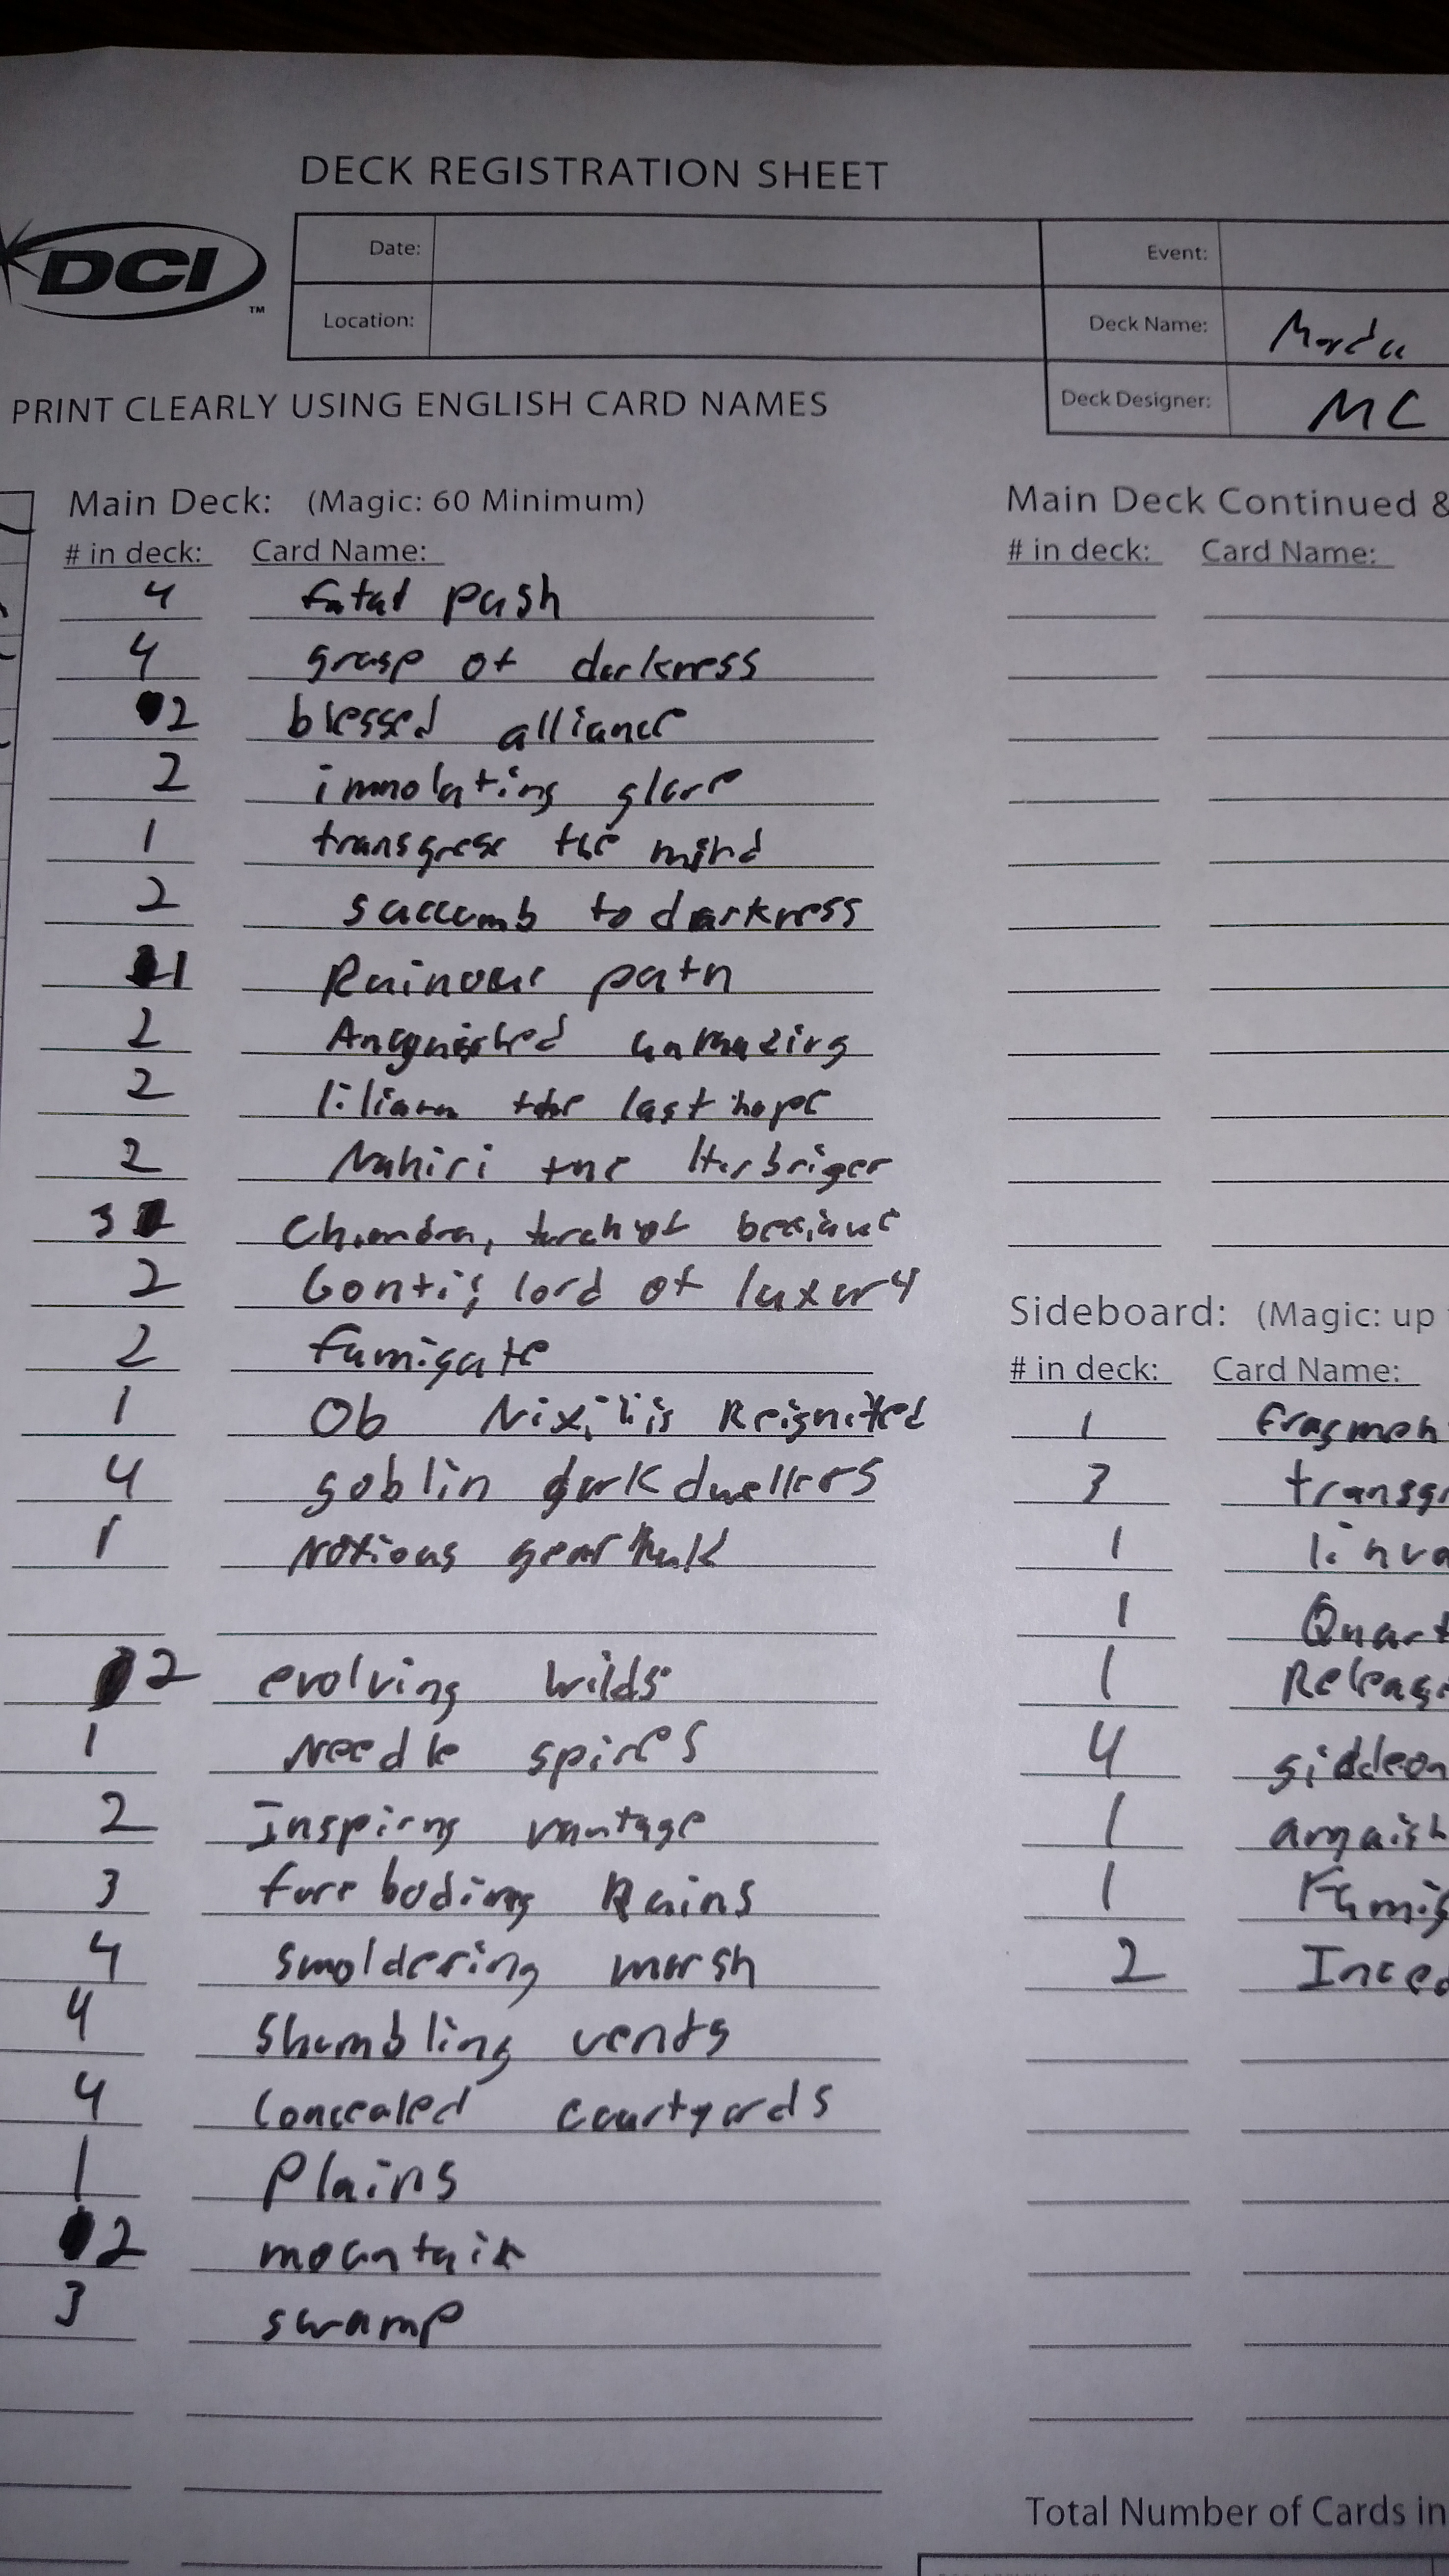 DECK REGISTRATION SHEET
DCI ™
Date:
Event:
Location:
Deck Name: Mardu
Deck Designer: MC
PRINT CLEARLY USING ENGLISH CARD NAMES
Main Deck: (Magic: 60 Minimum)
# in deck: Card Name:
4 fatal push
4 grasp of darkness
2 blessed alliance
2 immolating glare
1 transgress the mind
2 succumb to darkness
1 Ruinous path
2 Anguished unmaking
2 liliana the last hope
2 Nahiri the Harbriger
3 Chandra, torch of
2 Gonti, lord of luxury
2 fumigate
1 Ob Nixilis Reignited
4 goblin dark dwellers
1 Noxious gearhulk
2 evolving wilds
1 Needle spires
2 Inspiring vantage
3 foreboding Ruins
4 smoldering marsh
4 Shambling vents
4 Concealed courtyards
1 Plains
2 mountain
3 swamp
Main Deck Continued &
# in deck: Card Name:
Sideboard: (Magic: up
# in deck: Card Name:
1 fragmen
3 transgr
1 linva
1 Quart
1 Releas
4 giddeon
1 anguish
1 Fumig
2 Incen
Total Number of Cards in